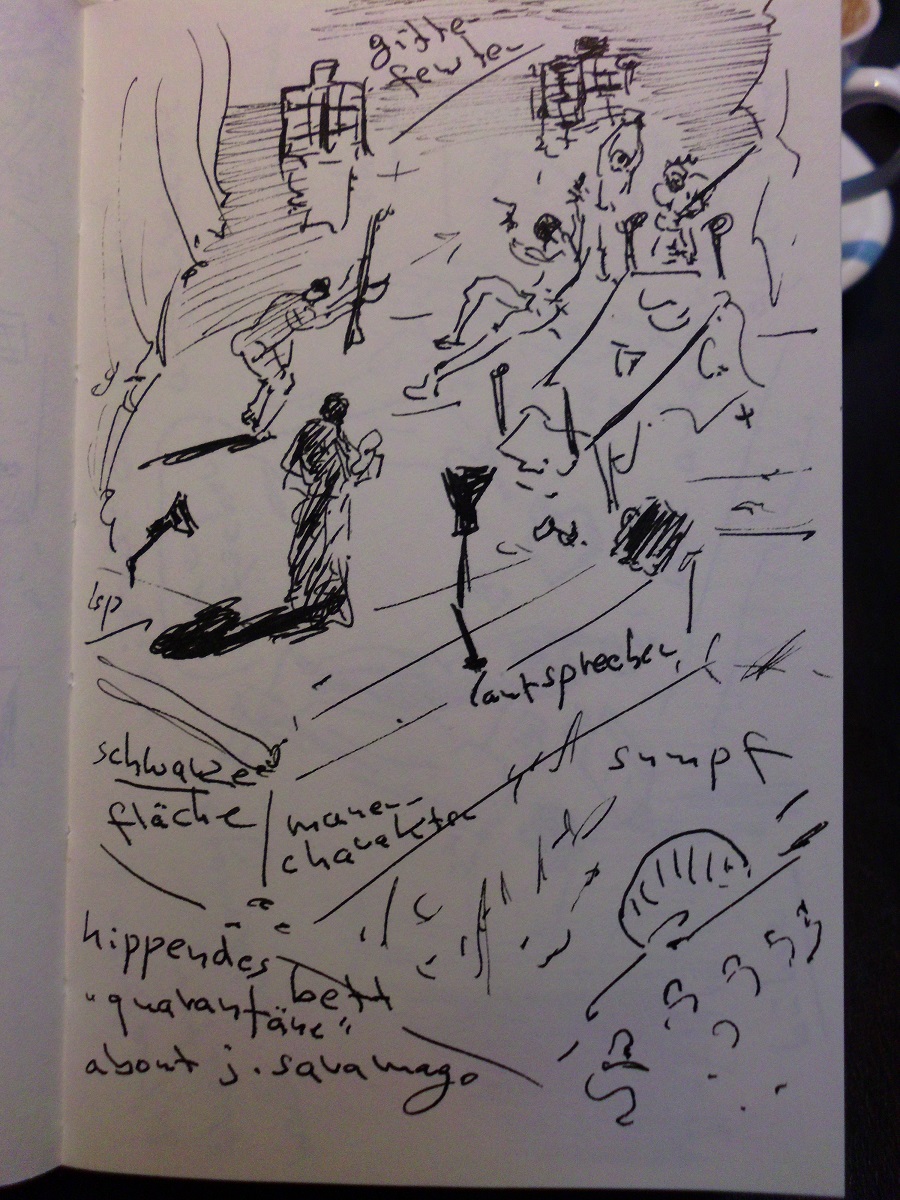 gitter-
fenster
lsp
lautsprecher
sumpf
schwarze
fläche
mauer-
charakter
hippendes
bett
"quarantäne"
about j. saramago